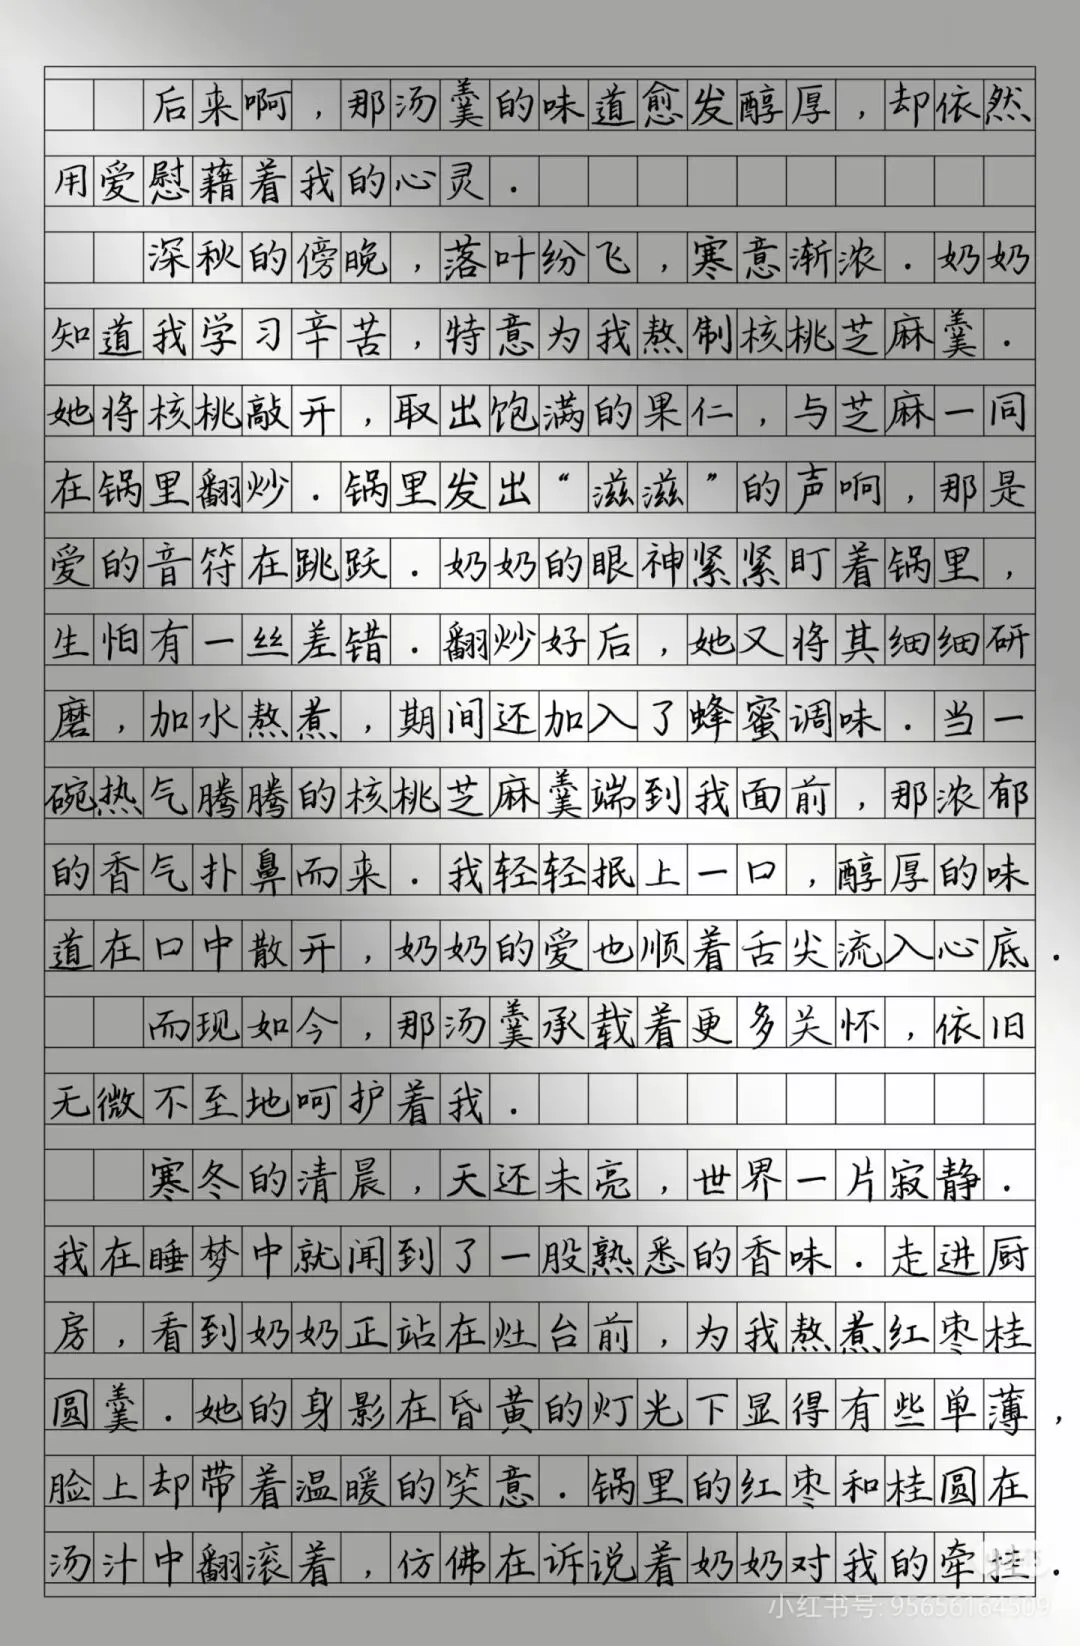 后来啊，那汤羹的味道愈发醇厚，却依然
用爱慰藉着我的心灵.
深秋的傍晚，落叶纷飞，寒意渐浓.奶奶
知道我学习辛苦，特意为我熬制核桃芝麻羹.
她将核桃敲开，取出饱满的果仁，与芝麻一同
在锅里翻炒.锅里发出“滋滋”的声响，那是
爱的音符在跳跃.奶奶的眼神紧紧盯着锅里，
生怕有一丝差错.翻炒好后，她又将其细细研
磨，加水熬煮，期间还加入了蜂蜜调味.当一
碗热气腾腾的核桃芝麻羹端到我面前，那浓郁
的香气扑鼻而来.我轻轻抿上一口，醇厚的味
道在口中散开，奶奶的爱也顺着舌尖流入心底.
而现如今，那汤羹承载着更多关怀，依旧
无微不至地呵护着我.
寒冬的清晨，天还未亮，世界一片寂静.
我在睡梦中就闻到了一股熟悉的香味.走进厨
房，看到奶奶正站在灶台前，为我熬煮红枣桂
圆羹.她的身影在昏黄的灯光下显得有些单薄，
脸上却带着温暖的笑意.锅里的红枣和桂圆在
汤汁中翻滚着，仿佛在诉说着奶奶对我的牵挂.
小红书号: 95656164509